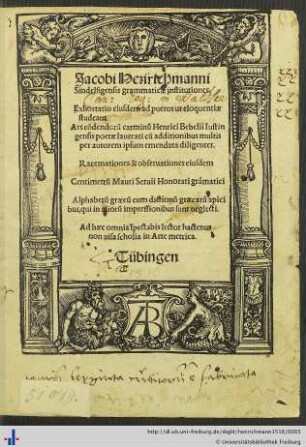 Jacobi Henrichmanni
Sindelfigensis grammaticæ institutiones.
Exhortatio eiusdem ad pueros ut eloquentiæ
studeant
Ars cōdendorū carminū Henrici Bebelii Iustin
gensis poetæ laureati cū additionibus multis
per autorem ipsum emendata diligenter.
Racemationes & obseruationes eiusdem
Centimetrū Mauri Seruii Honorati grāmatici
Alphabetū græcū cum dictionū græcarū apici
bus, qui in aliorū impressionibus sunt neglecti.
Ad hæc omnia spectabis lector hactenus
non uisa scholia in Arte metrica.
Tübingen
AB
http://dl.ub.uni-freiburg.de/diglit/henrichmann1518/0005
© Universitätsbibliothek Freiburg